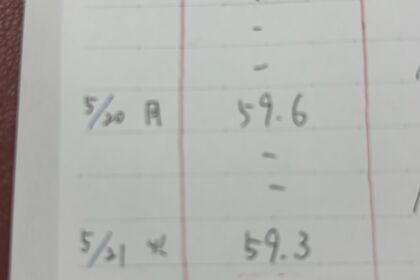 -
-
5/20 月 59.6
-
-
5/21 火 59.3